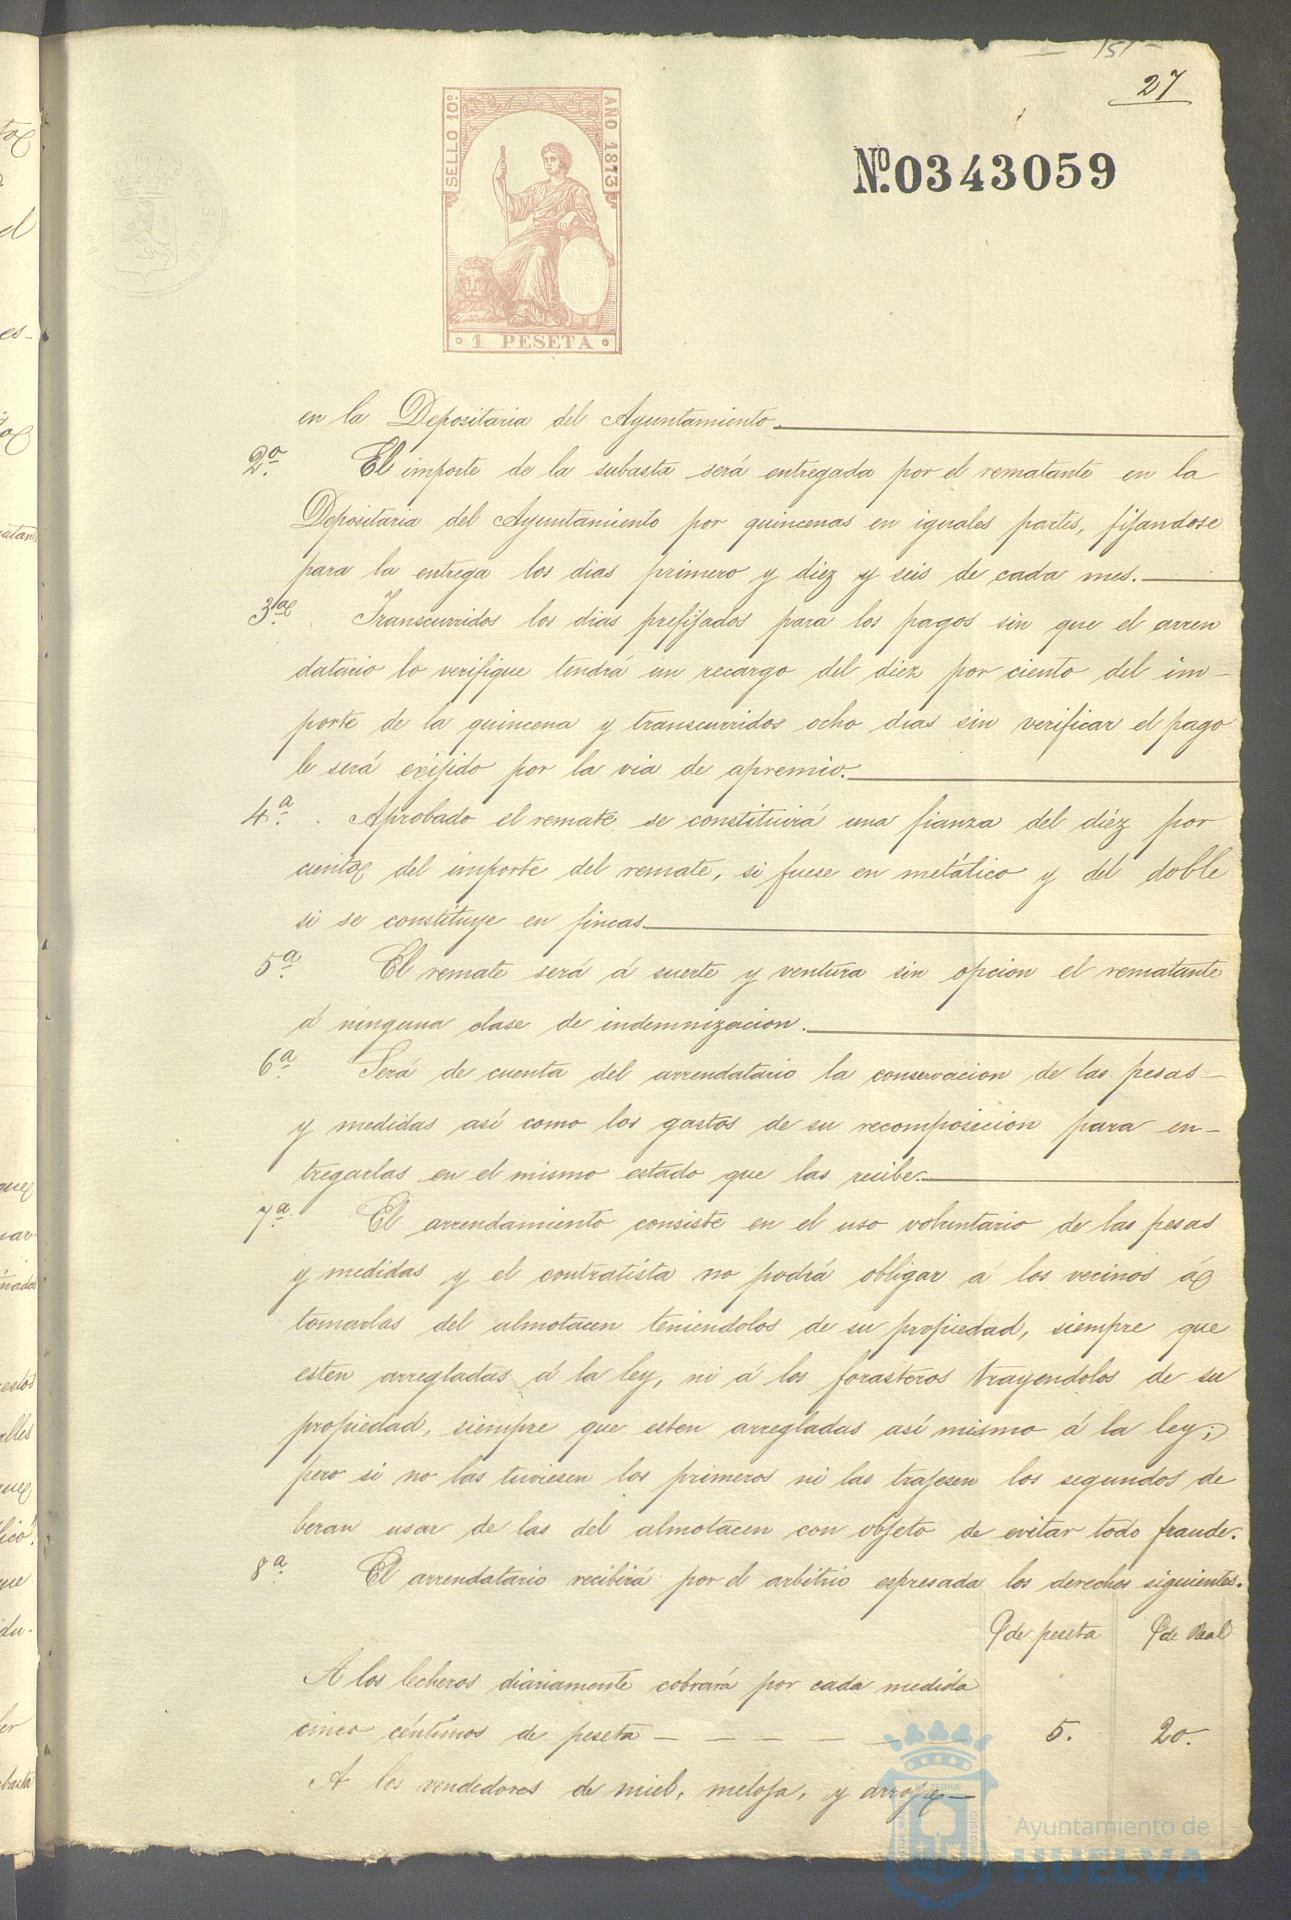 151
27
SELLO 10º
AÑO 1873
Nº. 0343059
1 PESETA
en la Depositaria del Ayuntamiento.
2ª El importe de la subasta será entregada por el rematante en la
Depositaria del Ayuntamiento por quincenas en iguales partes, fijandose
para la entrega los dias primero y diez y seis de cada mes.
3ª Transcurridos los dias prefijados para los pagos sin que el arren
datario lo verifique tendrá un recargo del diez por ciento del im-
porte de la quincena y transcurridos ocho dias sin verificar el pago
le será exijido por la via de apremio.
4ª Aprobado el remate se constituirá una fianza del diéz por
ciento del importe del remate, si fuese en metálico y del doble
si se constituye en fincas.
5ª El remate será á suerte y ventura sin opcion el rematante
á ninguna clase de indemnizacion.
6ª Será de cuenta del arrendatario la conservacion de las pesas
y medidas así como los gastos de su recomposicion para en-
tregarlas en el mismo estado que las recibe.
7ª El arrendamiento consiste en el uso voluntario de las pesas
y medidas y el contratista no podrá obligar a los vecinos á
tomarlas del almotacen teniendolos de su propiedad, siempre que
esten arregladas á la ley, ni á los forasteros trayendolos de su
propiedad, siempre que esten arregladas así mismo á la ley;
pero si no las tuviesen los primeros ni las trajesen los segundos de
beran usar de las del almotacen con objeto de evitar todo fraude.
8ª El arrendatario recibirá por el arbitrio espresada los derechos siguientes.
de peseta de Real
A los lecheros diariamente cobrará por cada medida
cinco céntimos de peseta — — — — — 5. 20.
A los vendedores de miel, meloja, y arrope —
Ayuntamiento de
HUELVA